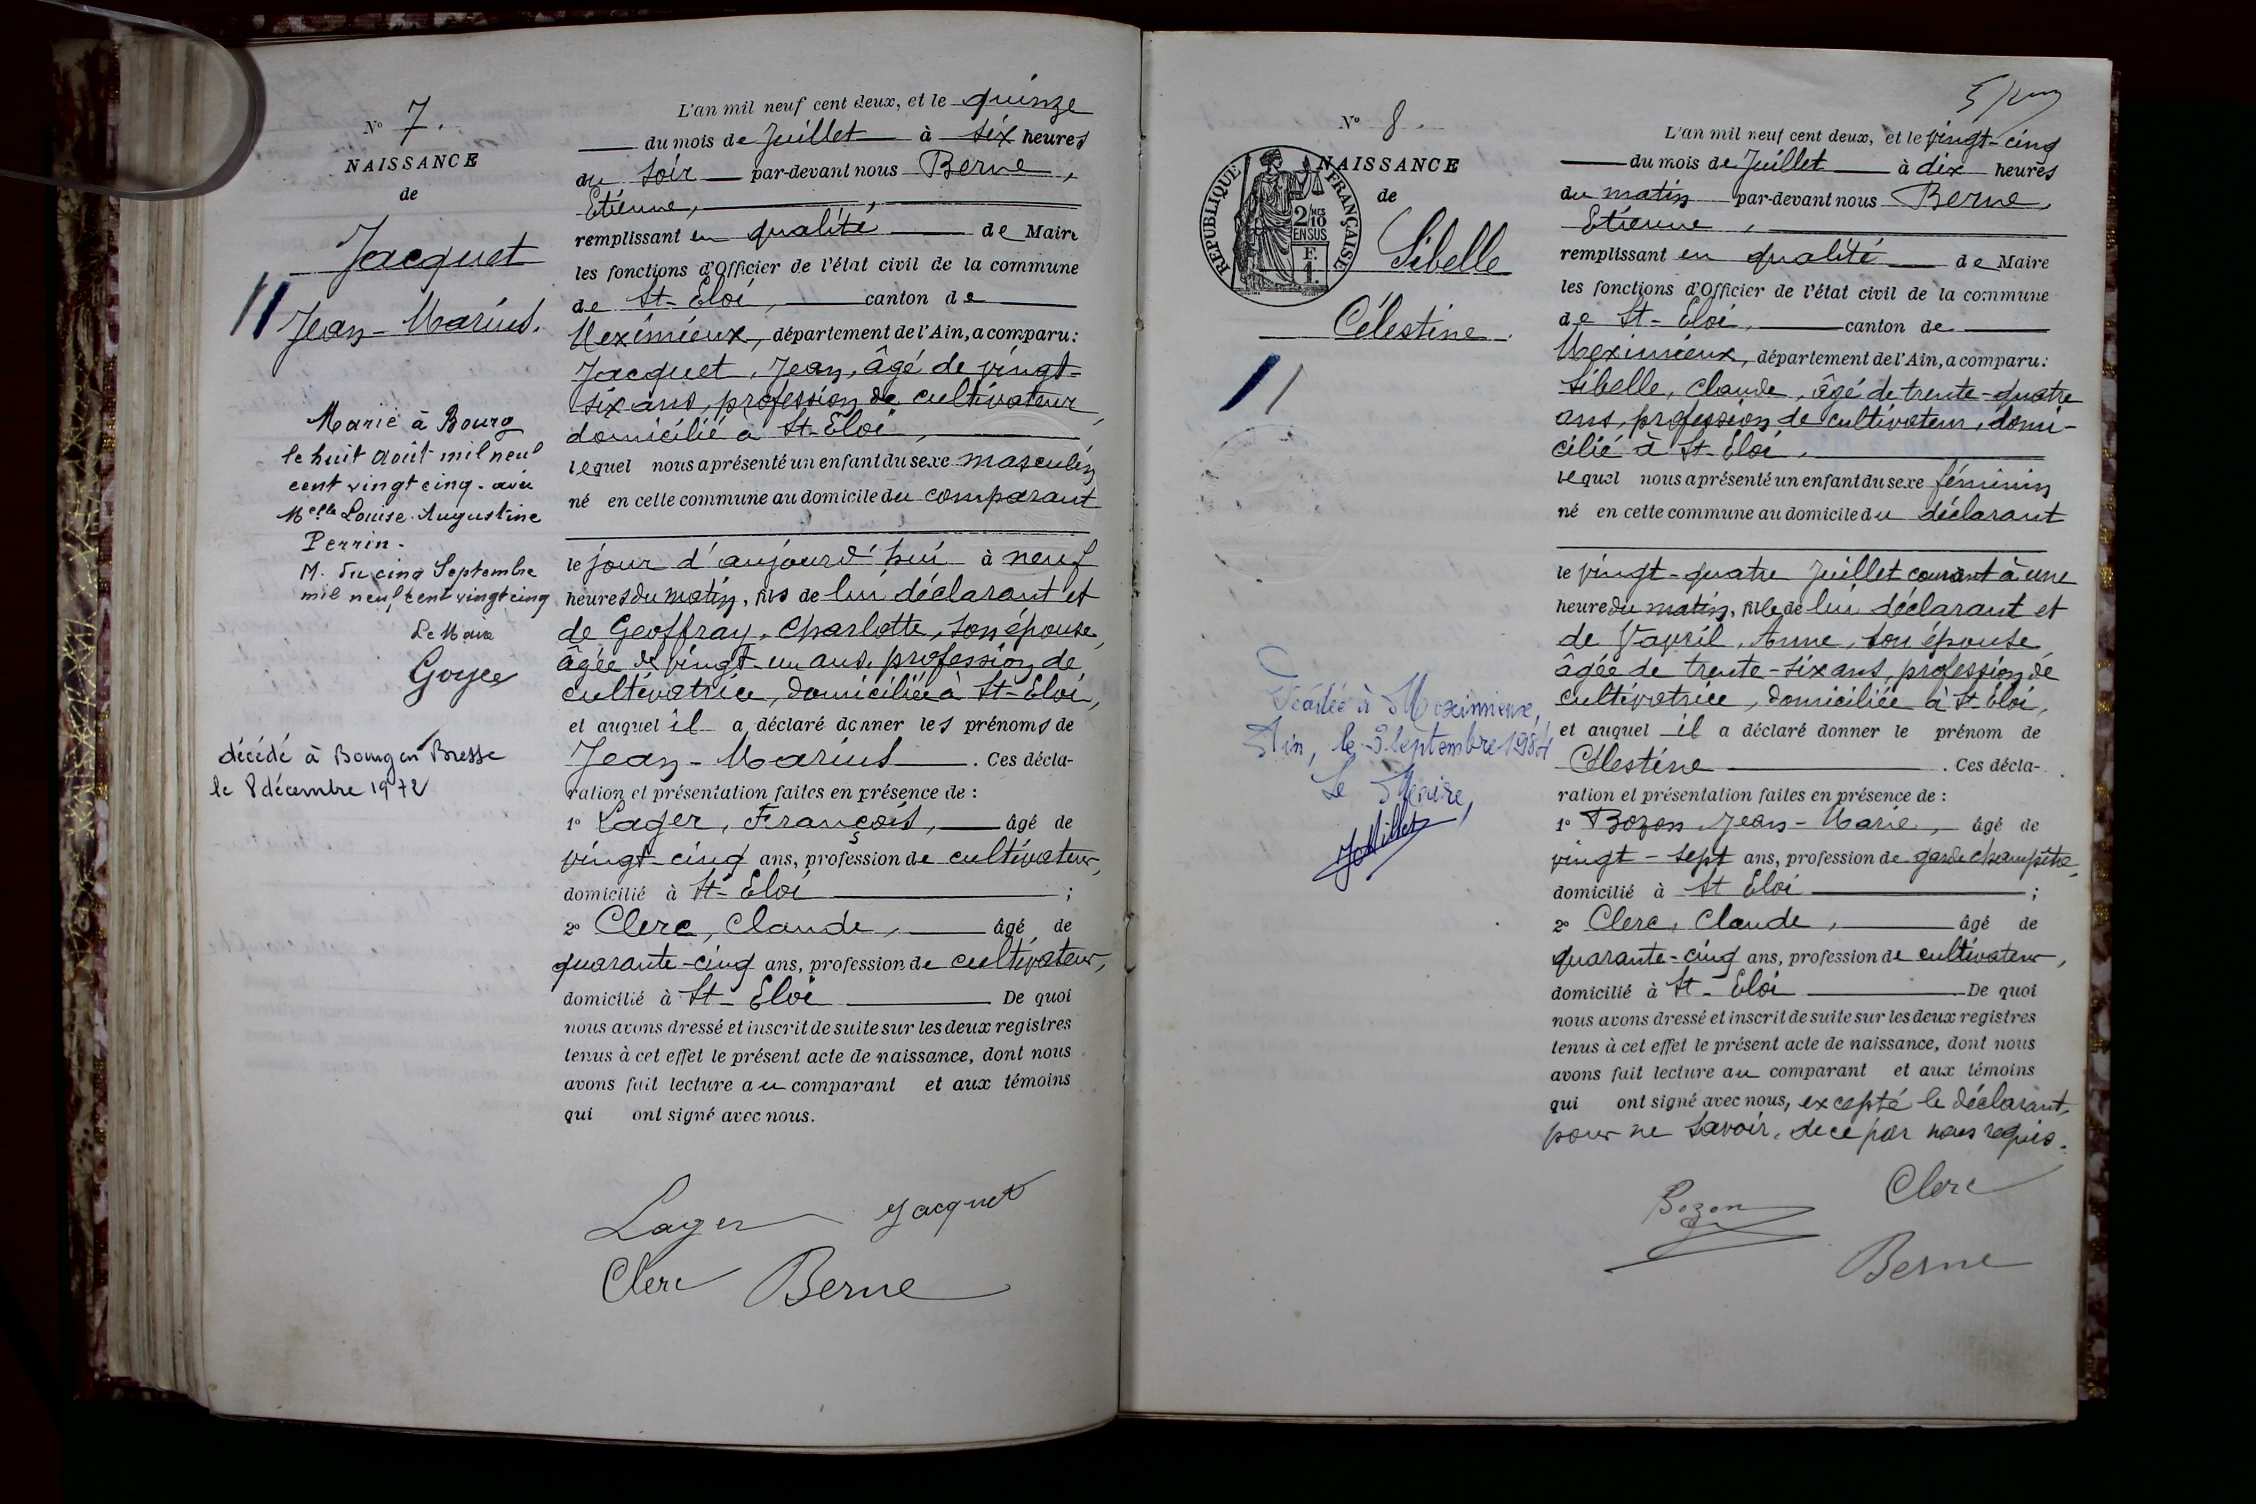 N° 7.
NAISSANCE
de
Jacquet
Jean-Marius.
Marié à Bourg
le huit août mil neuf
cent vingt cinq. avec
Melle Louise Augustine
Perrin.
M. du cinq Septembre
mil neuf cent vingt cinq
Le Maire
Goyer
décédé à Bourg en Bresse
le 8 décembre 1972
L'an mil neuf cent deux, et le quinze
du mois de Juillet à six heures
du soir par-devant nous Berne,
Etienne,
remplissant en qualité de Maire
les fonctions d'Officier de l'état civil de la commune
de St-Eloi, canton de
Meximieux, département de l'Ain, a comparu:
Jacquet, Jean, âgé de vingt-
six ans, profession de cultivateur,
domicilié à St-Eloi,
lequel nous a présenté un enfant du sexe masculin
né en celle commune au domicile du comparant
le jour d'aujourd'hui à neuf
heures du matin, fils de lui déclarant et
de Geoffray, Charlotte, son épouse,
âgée de vingt-un ans, profession de
cultivatrice, domiciliée à St-Eloi,
et auquel il a déclaré donner les prénoms de
Jean-Marius. Ces décla-
ration et présentation faites en présence de :
1° Lager, François, âgé de
vingt-cinq ans, profession de cultivateur,
domicilié à St-Eloi ;
2° Clerc, Claude, âgé de
quarante-cinq ans, profession de cultivateur,
domicilié à St-Eloi De quoi
nous avons dressé et inscrit de suite sur les deux registres
tenus à cet effet le présent acte de naissance, dont nous
avons fait lecture au comparant et aux témoins
qui ont signé avec nous.
Lager Jacquet
Clerc Berne
N° 8.
NAISSANCE
de
RÉPUBLIQUE FRANÇAISE
2/10 MES
EN SUS
F.
1.
Sibelle
Célestine.
Décédée à Meximieux,
Ain, le 3 Septembre 1984
Le Maire,
L'an mil neuf cent deux, et le vingt-cinq
du mois de Juillet à dix heures
du matin par-devant nous Berne,
Etienne,
remplissant en qualité de Maire
les fonctions d'Officier de l'état civil de la commune
de St-Eloi, canton de
Meximieux, département de l'Ain, a comparu:
Sibelle, Claude, âgé de trente-quatre
ans, profession de cultivateur, domi-
cilié à St-Eloi,
lequel nous a présenté un enfant du sexe féminin
né en cette commune au domicile du déclarant
le vingt-quatre Juillet courant à une
heure du matin, fille de lui déclarant et
de Vavril, Anne, son épouse
âgée de trente-six ans, profession de
cultivatrice, domiciliée à St Eloi,
et auquel il a déclaré donner le prénom de
Célestine. Ces décla-
ration et présentation faites en présence de :
1° Bozon, Jean-Marie, âgé de
vingt-sept ans, profession de garde champêtre,
domicilié à St Eloi ;
2° Clerc, Claude, âgé de
quarante-cinq ans, profession de cultivateur,
domicilié à St-Eloi De quoi
nous avons dressé et inscrit de suite sur les deux registres
tenus à cet effet le présent acte de naissance, dont nous
avons fait lecture au comparant et aux témoins
qui ont signé avec nous, excepté le déclarant,
pour ne savoir, de ce par nous requis.
Bozon Clerc
Berne